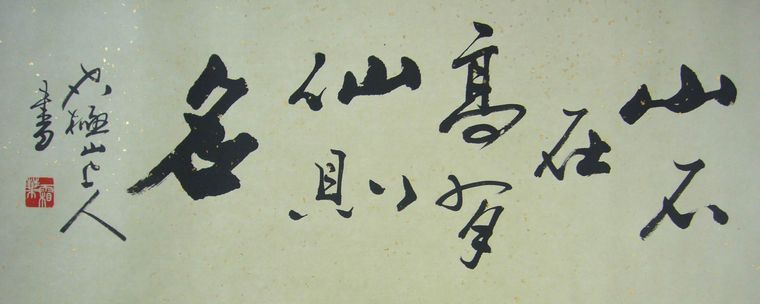 山不
在
高有
仙則
名
極山上人
書